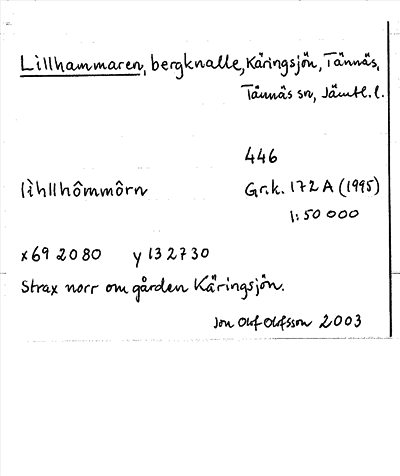 Lillhammaren, bergknalle, Käringsjön, Tännäs,
Tännäs sn, Jämtl. l.
446
lìhllhômmôrn Gr.k. 172 A (1995)
1:50 000
x 69 2080 y 132730
Strax norr om gården Käringsjön.
Jon Olof Olofsson 2003